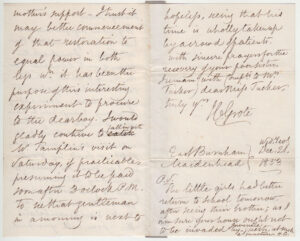 mother's support - I trust it
may be the commencement
of that restoration to
equal power in both
legs wh it has been the
purpose of this interesting
experiment to procure
to the dear boy. I would
gladly contrive to
Mr Tamplin's visit on
Saturday, if practicable,
presuming it to be paid
soon after 3 o'clock P.M.
To see that gentleman
in a morning is next to
hopeless, seeing that his
time is wholly taken up
by a crowd of patients
With sincere prayers for the
recovery of your
with
Tucker, dear Miss Tucker,
truly yrs
H Grote
East Burnham
Maidenhead
1853
P.S.
The little girls had better
return to school tomorrow
after seeing their brother, as I
am sure your house ought not
to be invaded